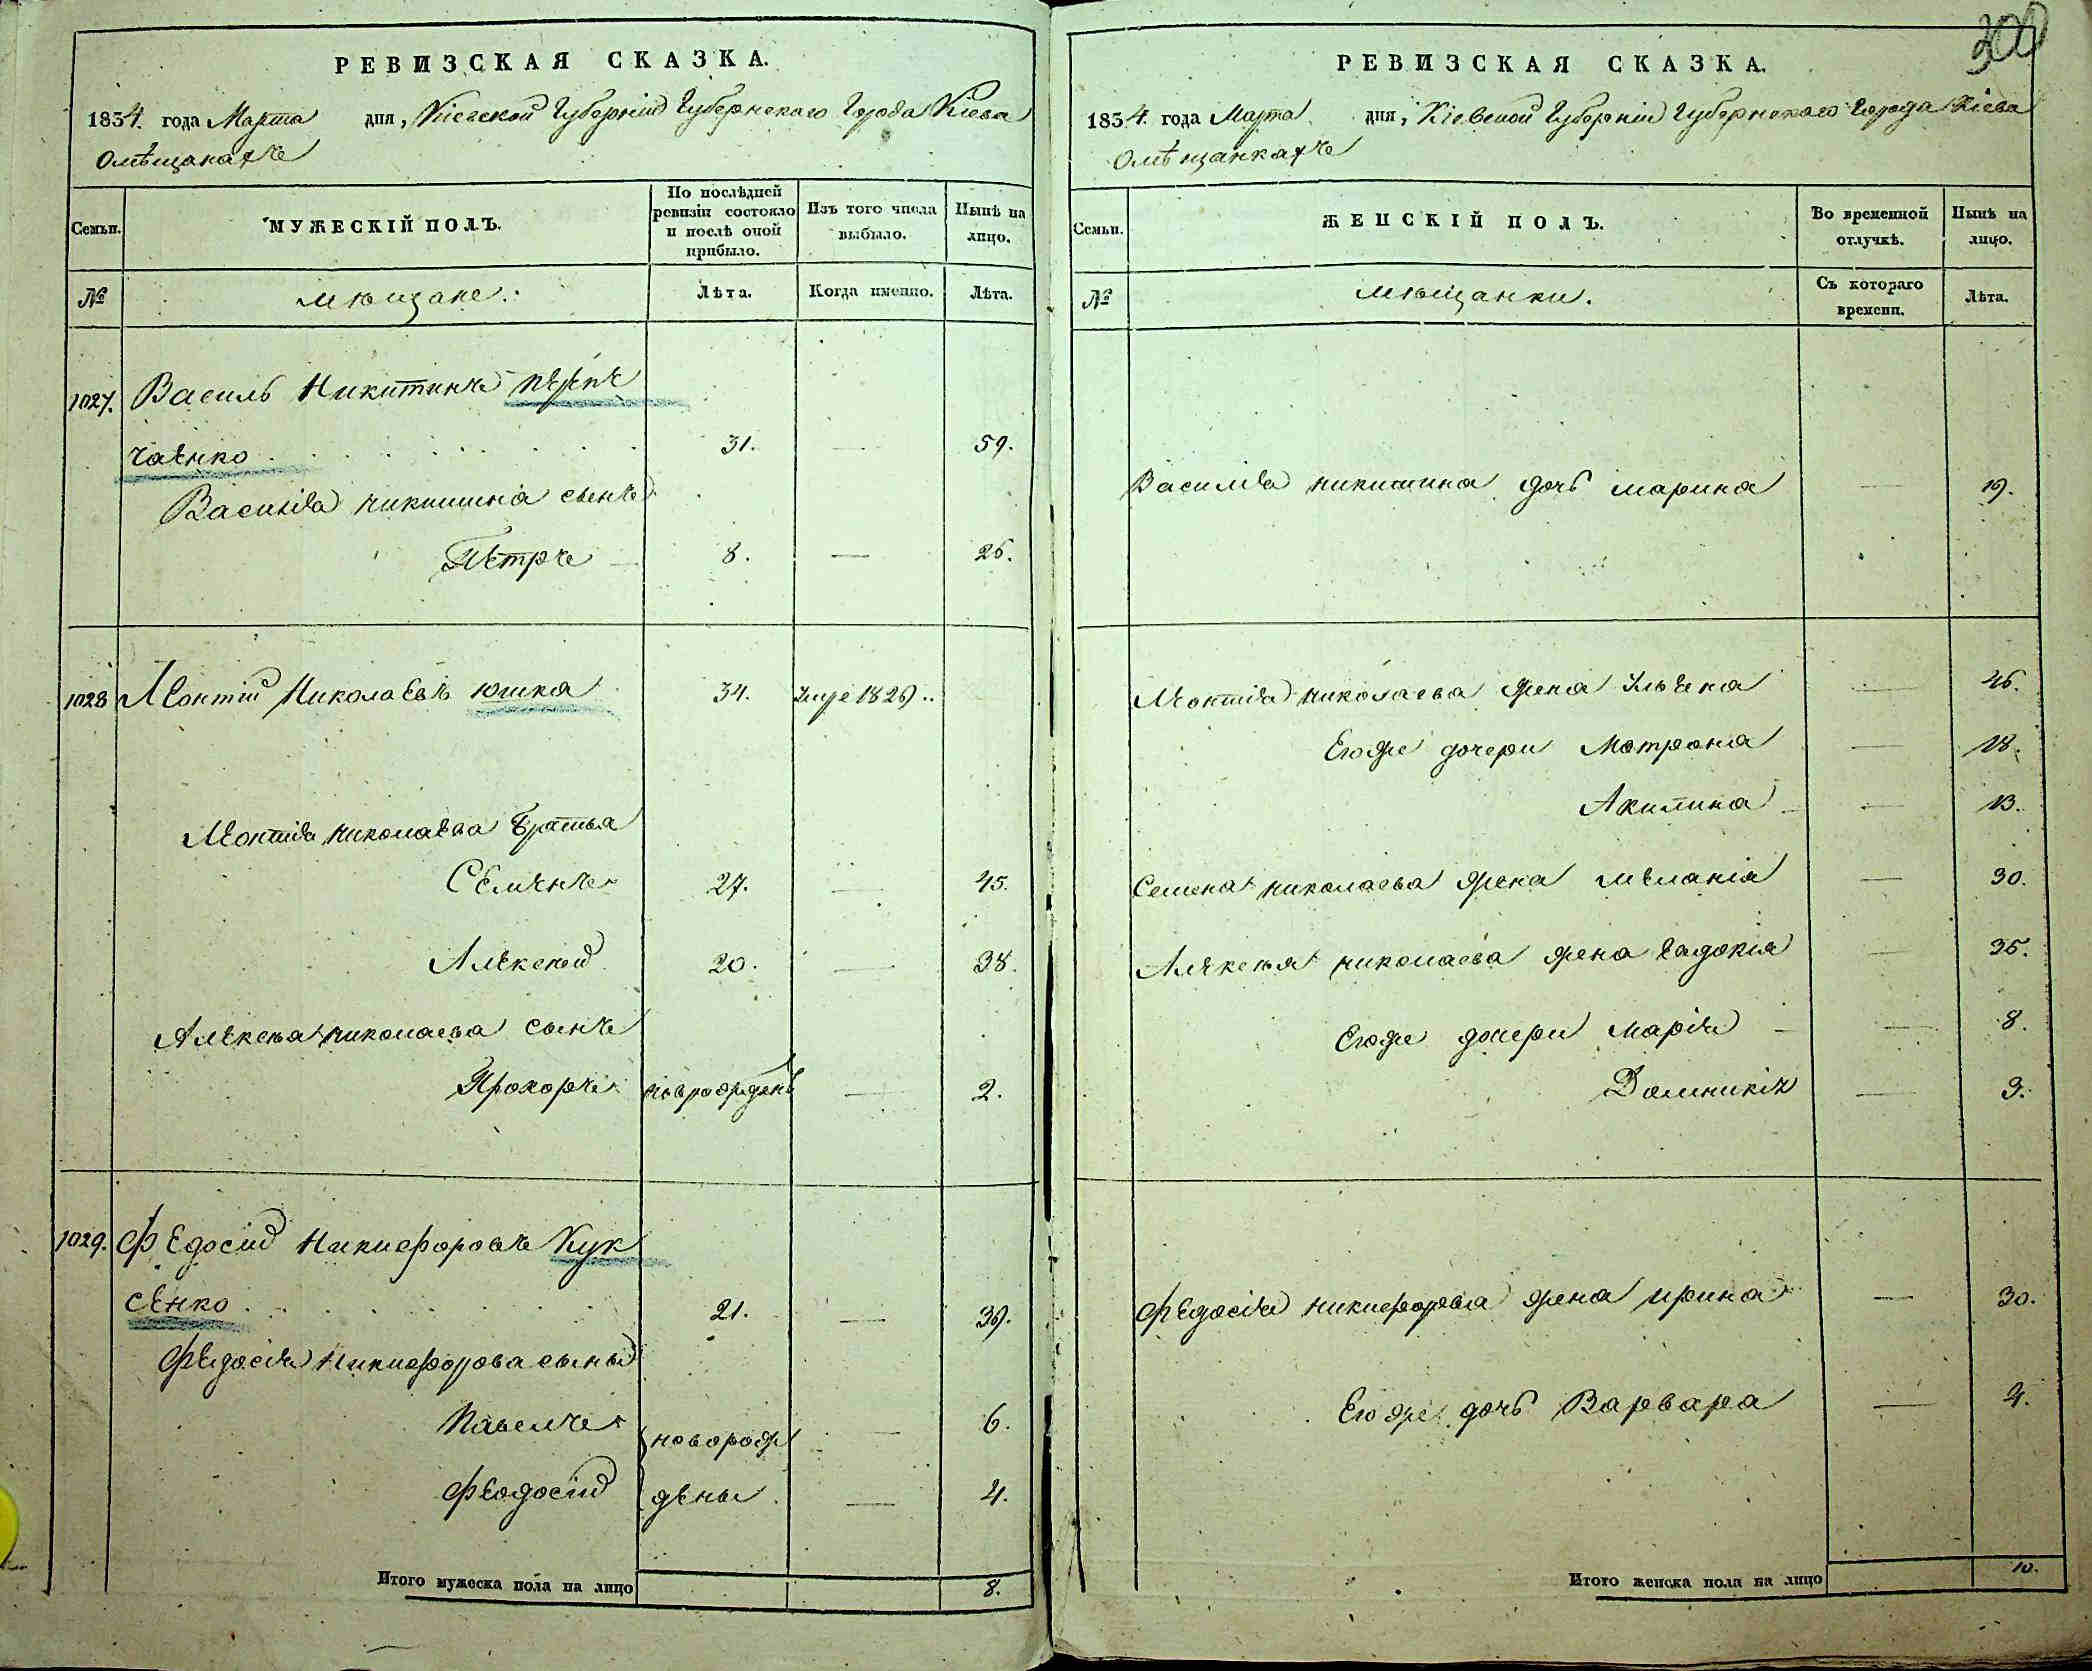 РЕВИЗСКАЯ СКАЗКА.
1834. года Марта дня, Кіевской Губерніи Губернскаго Города Кіева
Омѣщанахъ
Семьи.
МУЖЕСКІЙ ПОЛЪ.
По послѣдней ревизіи состояло и послѣ оной прибыло.
Изъ того числа выбыло.
Нынѣ на лицо.
№
мѣщане.
Лѣта.
Когда именно.
Лѣта.
1027. Василь Никитинъ
чаенко 31. — 59.
Василія никитина сынъ
Петръ 8. — 26.
1028 Леонтій Николаевъ юшка 34. умре 1826..
Леонтія николаева братья
Семенъ 27. — 45.
Алексей 20. — 38.
Алексея николаева сынъ
Прохоръ новрожденъ — 2.
1029. Федосій Никифоровъ Кук
сенко 21. — 39.
Федосія Никифорова сыны
Павелъ новорож — 6.
Феодосій дены — 4.
Итого мужеска пола на лицо 8.
300
РЕВИЗСКАЯ СКАЗКА.
1834. года Марта дня, Кіевской Губерніи Губернскаго Города Кіева
Омѣщанкахъ
Семьи.
ЖЕНСКІЙ ПОЛЪ.
Во временной отлучкѣ.
Нынѣ на лицо.
№
мѣщанки.
Съ котораго времени.
Лѣта.
Василія никитина дочь марина — 19.
Леонтія николаева жена Ульяна — 46.
Егоже дочери Матрона — 18.
Акилина — 13.
Семена николаева жена меланія — 30.
Алексея николаева жена евдокія — 35.
Егоже дочери Марія — 8.
Домникія — 3.
Федосія никифорова жена ирина — 30.
Егоже дочь Варвара — 4.
Итого женска пола на лицо 10.